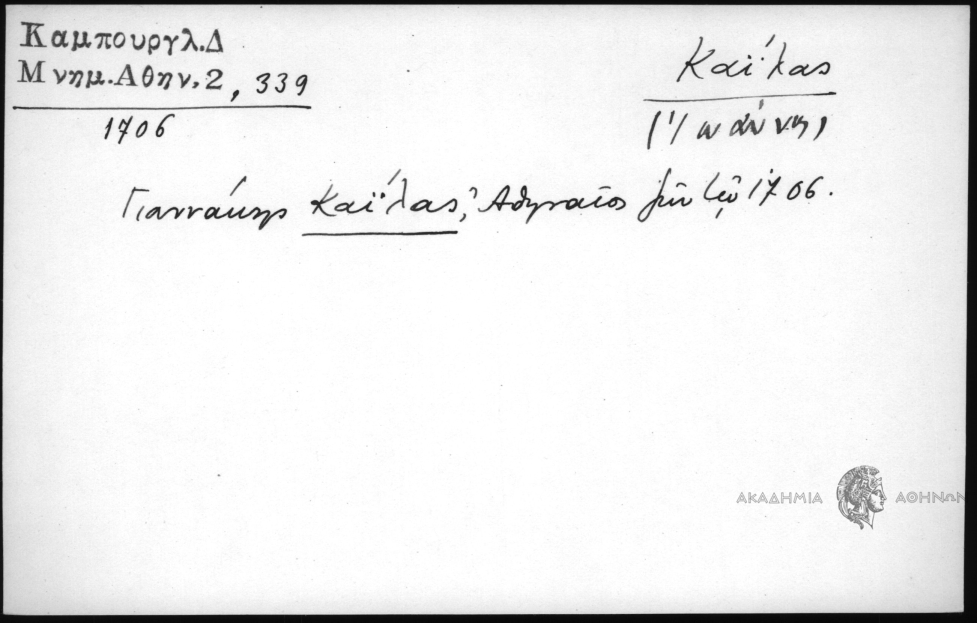 Καμπουργλ.Δ
Μνημ.Αθην.2, 339
1706
Καΐλας
(Ἰωάννης)
Γιαννάκης Καΐλας, Ἀθηναῖος ζῶν τῷ 1706.
ΑΚΑΔΗΜΙΑ ΑΘΗΝΩΝ